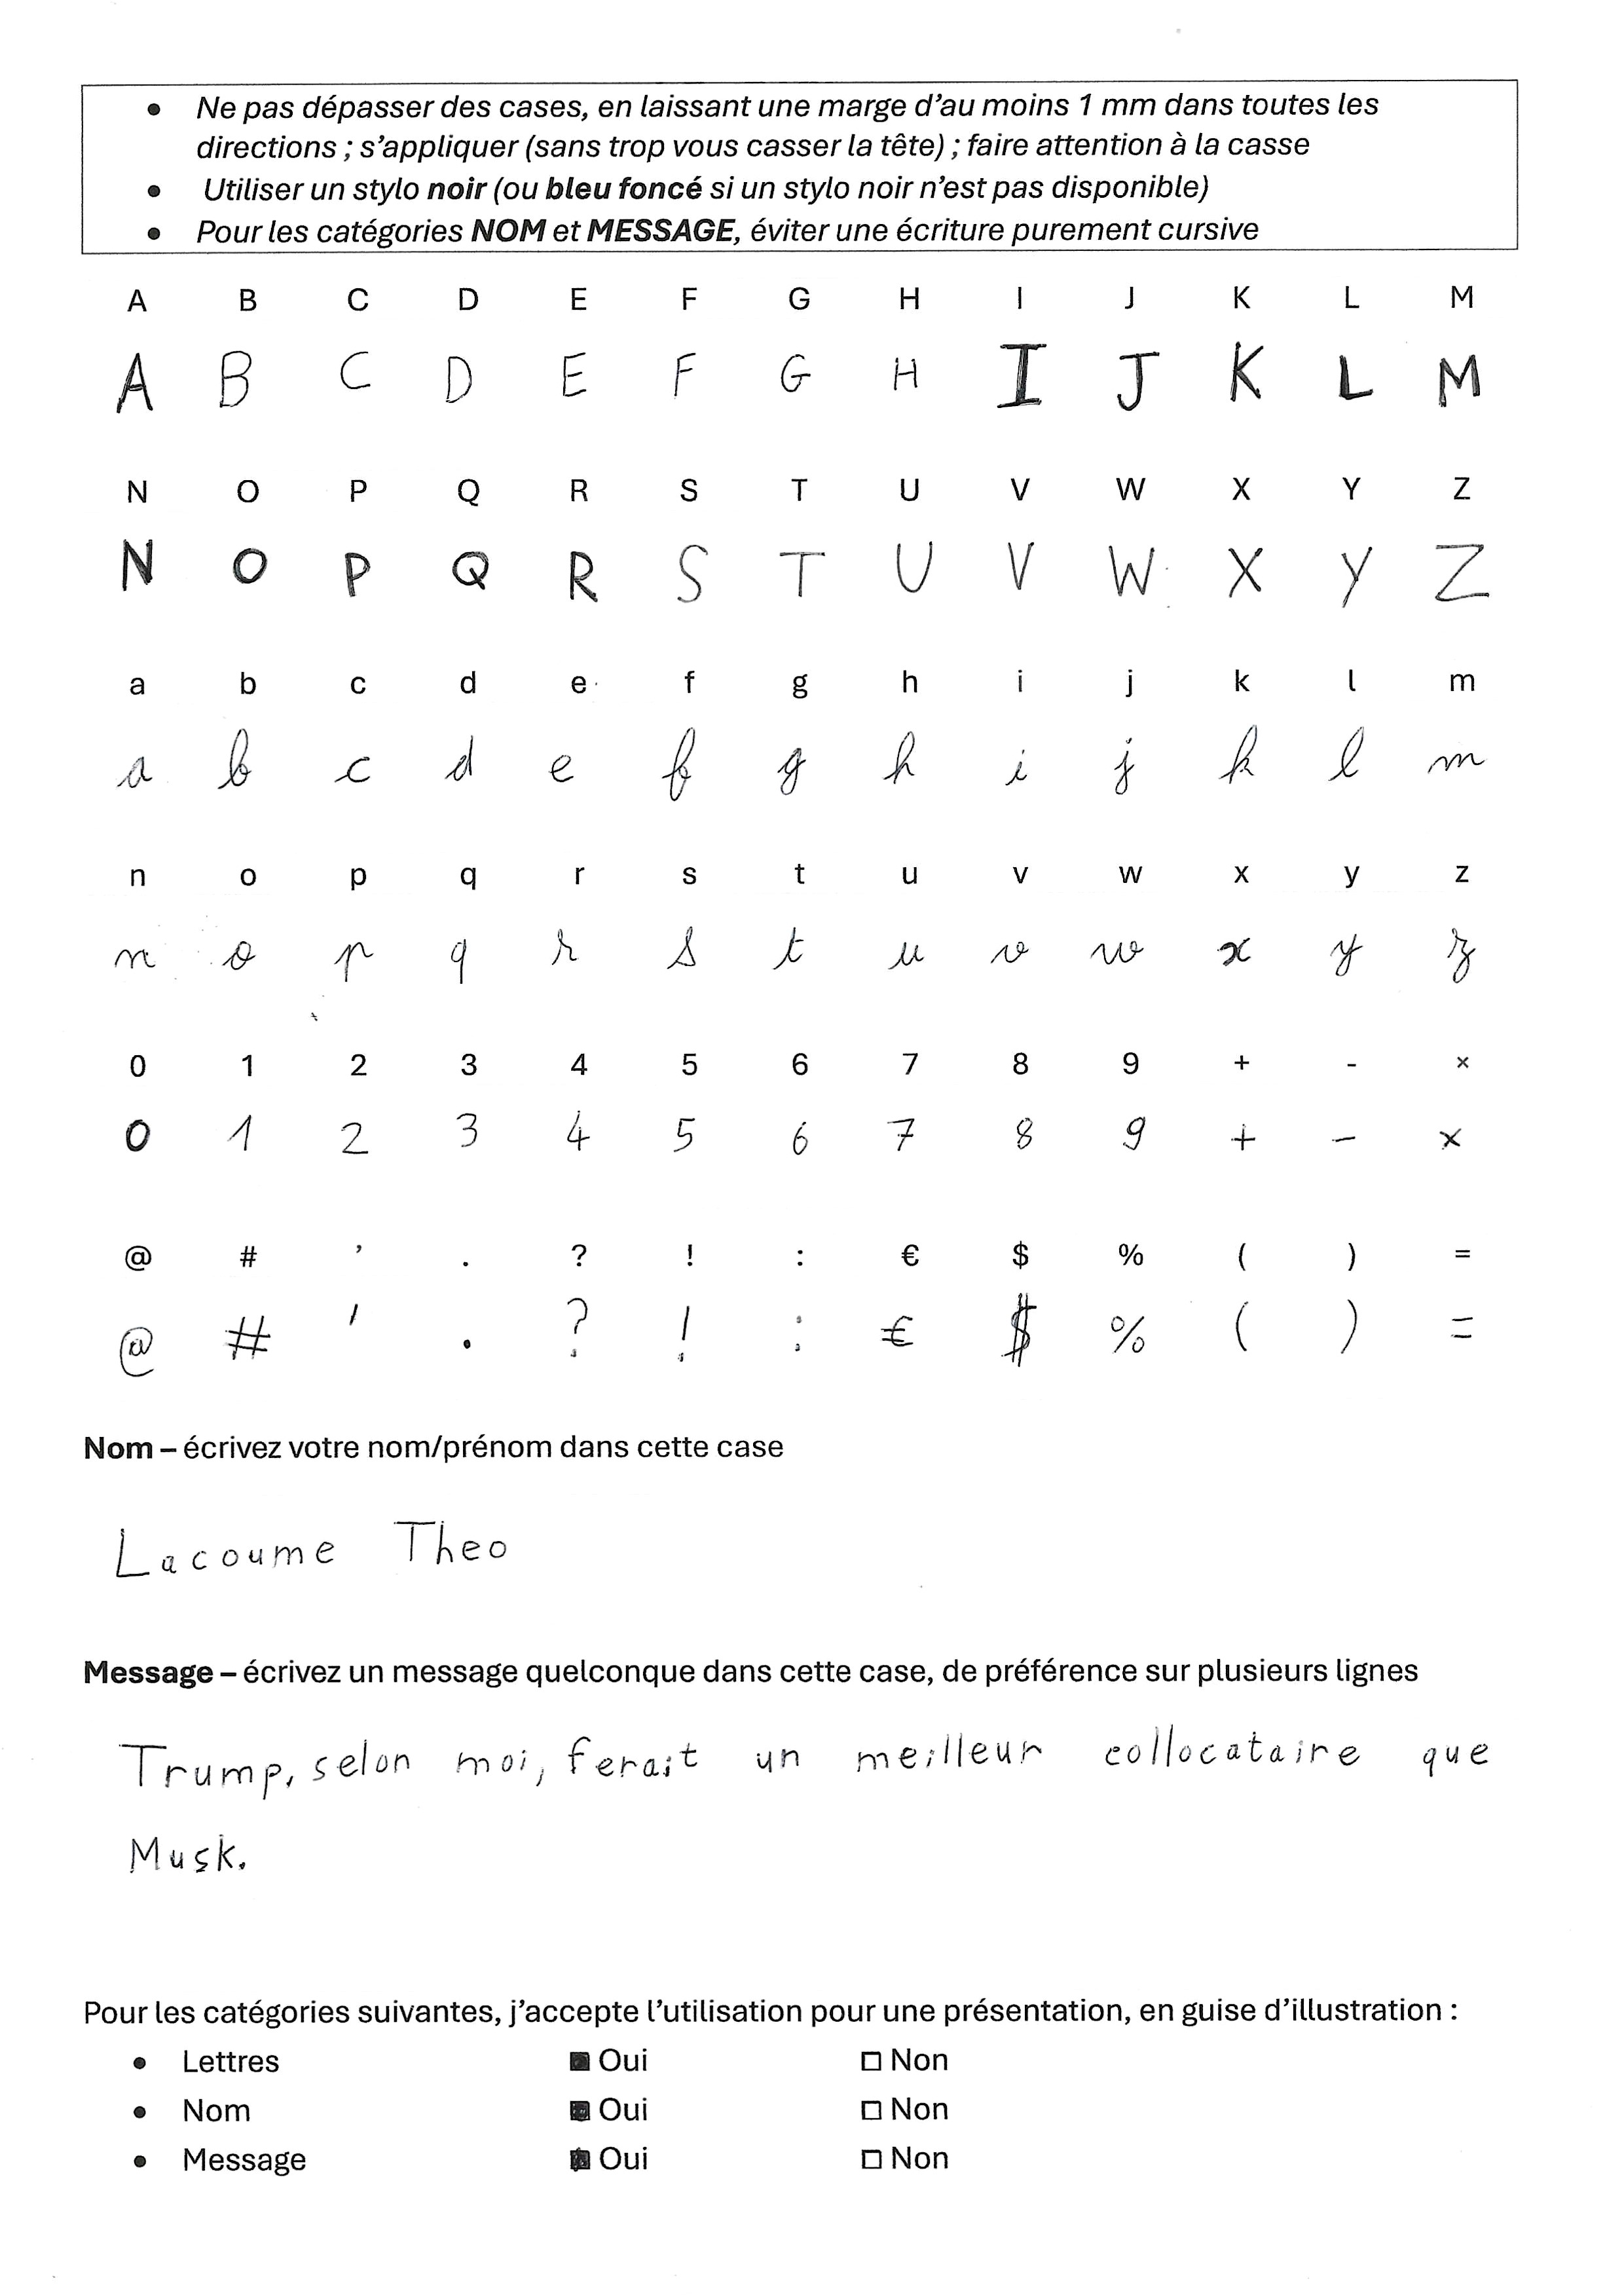 • Ne pas dépasser des cases, en laissant une marge d’au moins 1 mm dans toutes les
directions ; s’appliquer (sans trop vous casser la tête) ; faire attention à la casse
• Utiliser un stylo noir (ou bleu foncé si un stylo noir n’est pas disponible)
• Pour les catégories NOM et MESSAGE, éviter une écriture purement cursive
A B C D E F G H I J K L M
A B C D E F G H I J K L M
N O P Q R S T U V W X Y Z
N O P Q R S T U V W X Y Z
a b c d e f g h i j k l m
a b c d e f g h i j k l m
n o p q r s t u v w x y z
n o p q r s t u v w x y z
0 1 2 3 4 5 6 7 8 9 + - ×
0 1 2 3 4 5 6 7 8 9 + - ×
@ # ’ . ? ! : € $ % ( ) =
@ # ' . ? ! : € $ % ( ) =
Nom – écrivez votre nom/prénom dans cette case
Lacoume Theo
Message – écrivez un message quelconque dans cette case, de préférence sur plusieurs lignes
Trump, selon moi, ferait un meilleur collocataire que
Musk.
Pour les catégories suivantes, j’accepte l’utilisation pour une présentation, en guise d’illustration :
• Lettres ■ Oui □ Non
• Nom ■ Oui □ Non
• Message ■ Oui □ Non